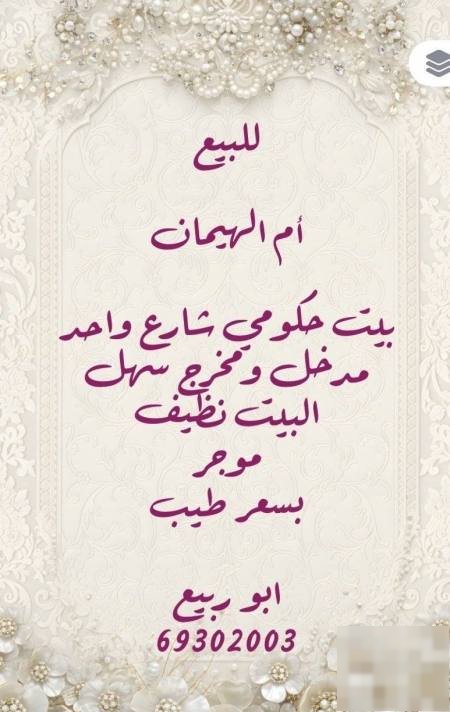 للبيع
أم الهيمان
بيت حكومي شارع واحد
مدخل ومخرج سهل
البيت نظيف
موجر
بسعر طيب
ابو ربيع
69302003